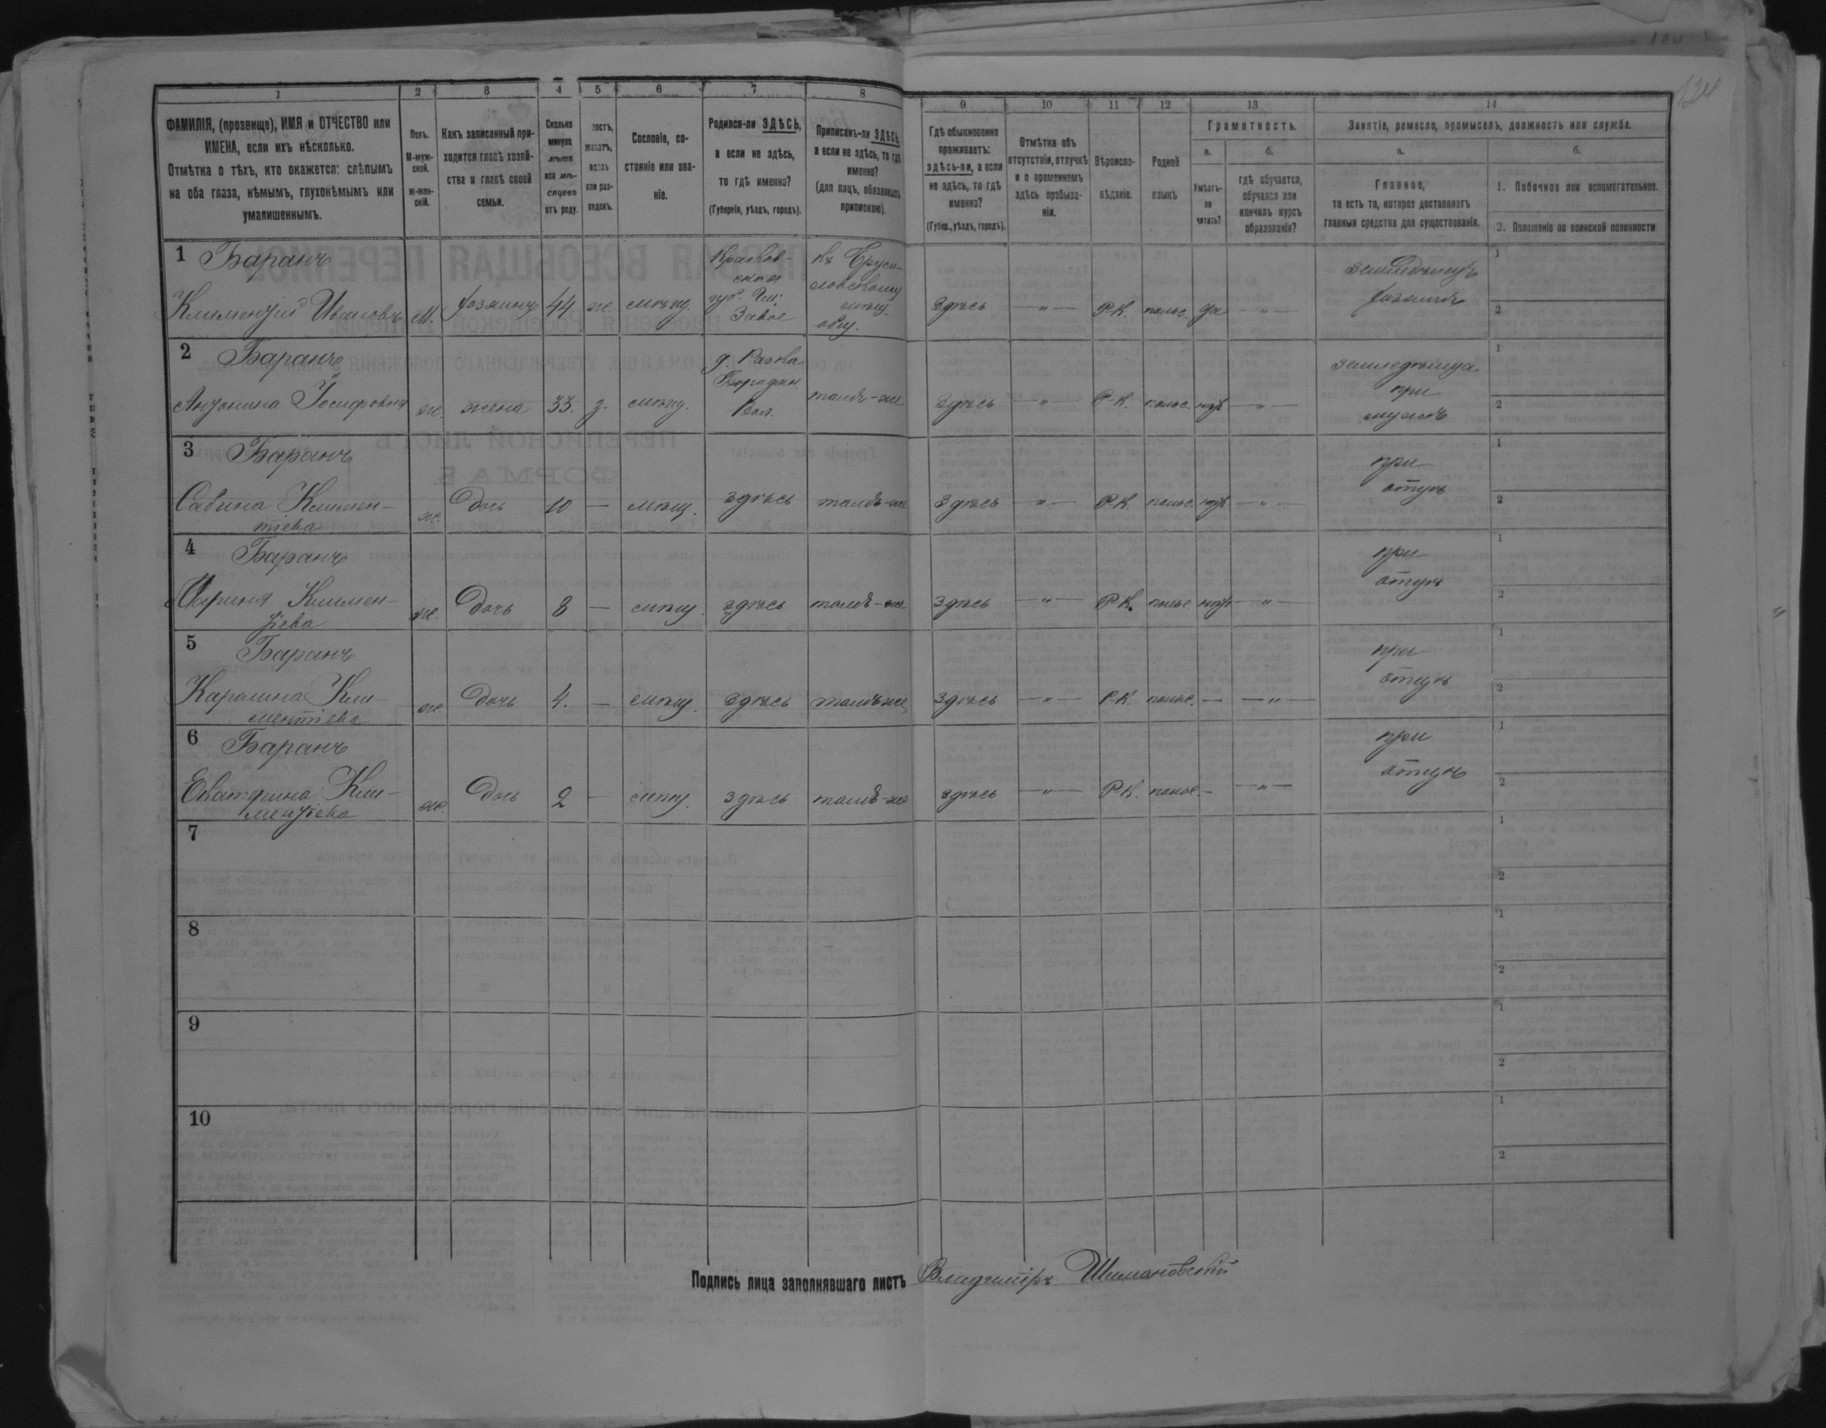 1 2 3 4 5 6 7 8 9 10 11 12 13 14
124
ФАМИЛІЯ, (прозвище), ИМЯ и ОТЧЕСТВО или
ИМЕНА, если ихъ нѣсколько.
Отмѣтка о тѣхъ, кто окажется: слѣпымъ
на оба глаза, нѣмымъ, глухонѣмымъ или
умалишеннымъ.
Полъ.
М-муж-
ской.
ж-жен-
скій.
Какъ записанный при-
ходится главѣ хозяй-
ства и главѣ своей
семьи.
Сколько
минуло
лѣтъ
или мѣ-
сяцевъ
отъ роду.
Сословіе, со-
стояніе или зва-
ніе.
Родился-ли ЗДѢСЬ,
а если не здѣсь,
то гдѣ именно?
(Губернія, уѣздъ, городъ).
Приписанъ-ли ЗДѢСЬ,
а если не здѣсь, то гдѣ
именно?
(для лицъ, обязанныхъ
припискою).
Гдѣ обыкновенно
проживаетъ:
здѣсь-ли, а если
не здѣсь, то гдѣ
именно?
(Губер., уѣздъ, городъ).
Отмѣтка объ
отсутствіи, отлучкѣ
и о временномъ
здѣсь пребыва-
ніи.
Вѣроиспо-
вѣданіе.
Родной
языкъ
Грамотность.
а.
Умѣетъ-
ли
читать?
б.
гдѣ обучается,
обучался или
кончилъ курсъ
образованія?
Занятіе, ремесло, промыселъ, должность или служба.
а.
Главное,
то есть то, которое доставляетъ
главныя средства для существованія.
б.
1. Побочное или вспомогательное.
2. Положеніе по воинской повинности
1 Баранъ
Климентій Ивановъ м. хозяинъ 44 ж. мѣщ. здѣсь — " — Р.К. польс. да — " — хозяинъ
2 Баранъ
Антонина Іосифовна ж. жена 33 з. мѣщ. тамъ-же здѣсь — " — Р.К. польс. нѣтъ — " — при мужѣ
3 Баранъ
Сабина Климен-
тіева ж. Дочь 10 — мѣщ. здѣсь тамъ-же здѣсь — " — Р.К. польс. нѣтъ — " — при отцѣ
4 Баранъ
Климен-
тіева ж. Дочь 8 — мѣщ. здѣсь тамъ-же здѣсь — " — Р.К. польс нѣтъ — " — при отцѣ
5 Баранъ
Каролина Кли-
ментіева ж. Дочь 4. — мѣщ. здѣсь тамъ же здѣсь — " — Р.К. польс. — — " — при отцѣ
6 Баранъ
Екатерина Кли-
ментіева ж. Дочь 2 — мѣщ. здѣсь тамъ-же здѣсь — " — Р.К. польс. — — " — при отцѣ
7
8
9
10
Подпись лица заполнявшаго листъ Владиміръ Шимановскій